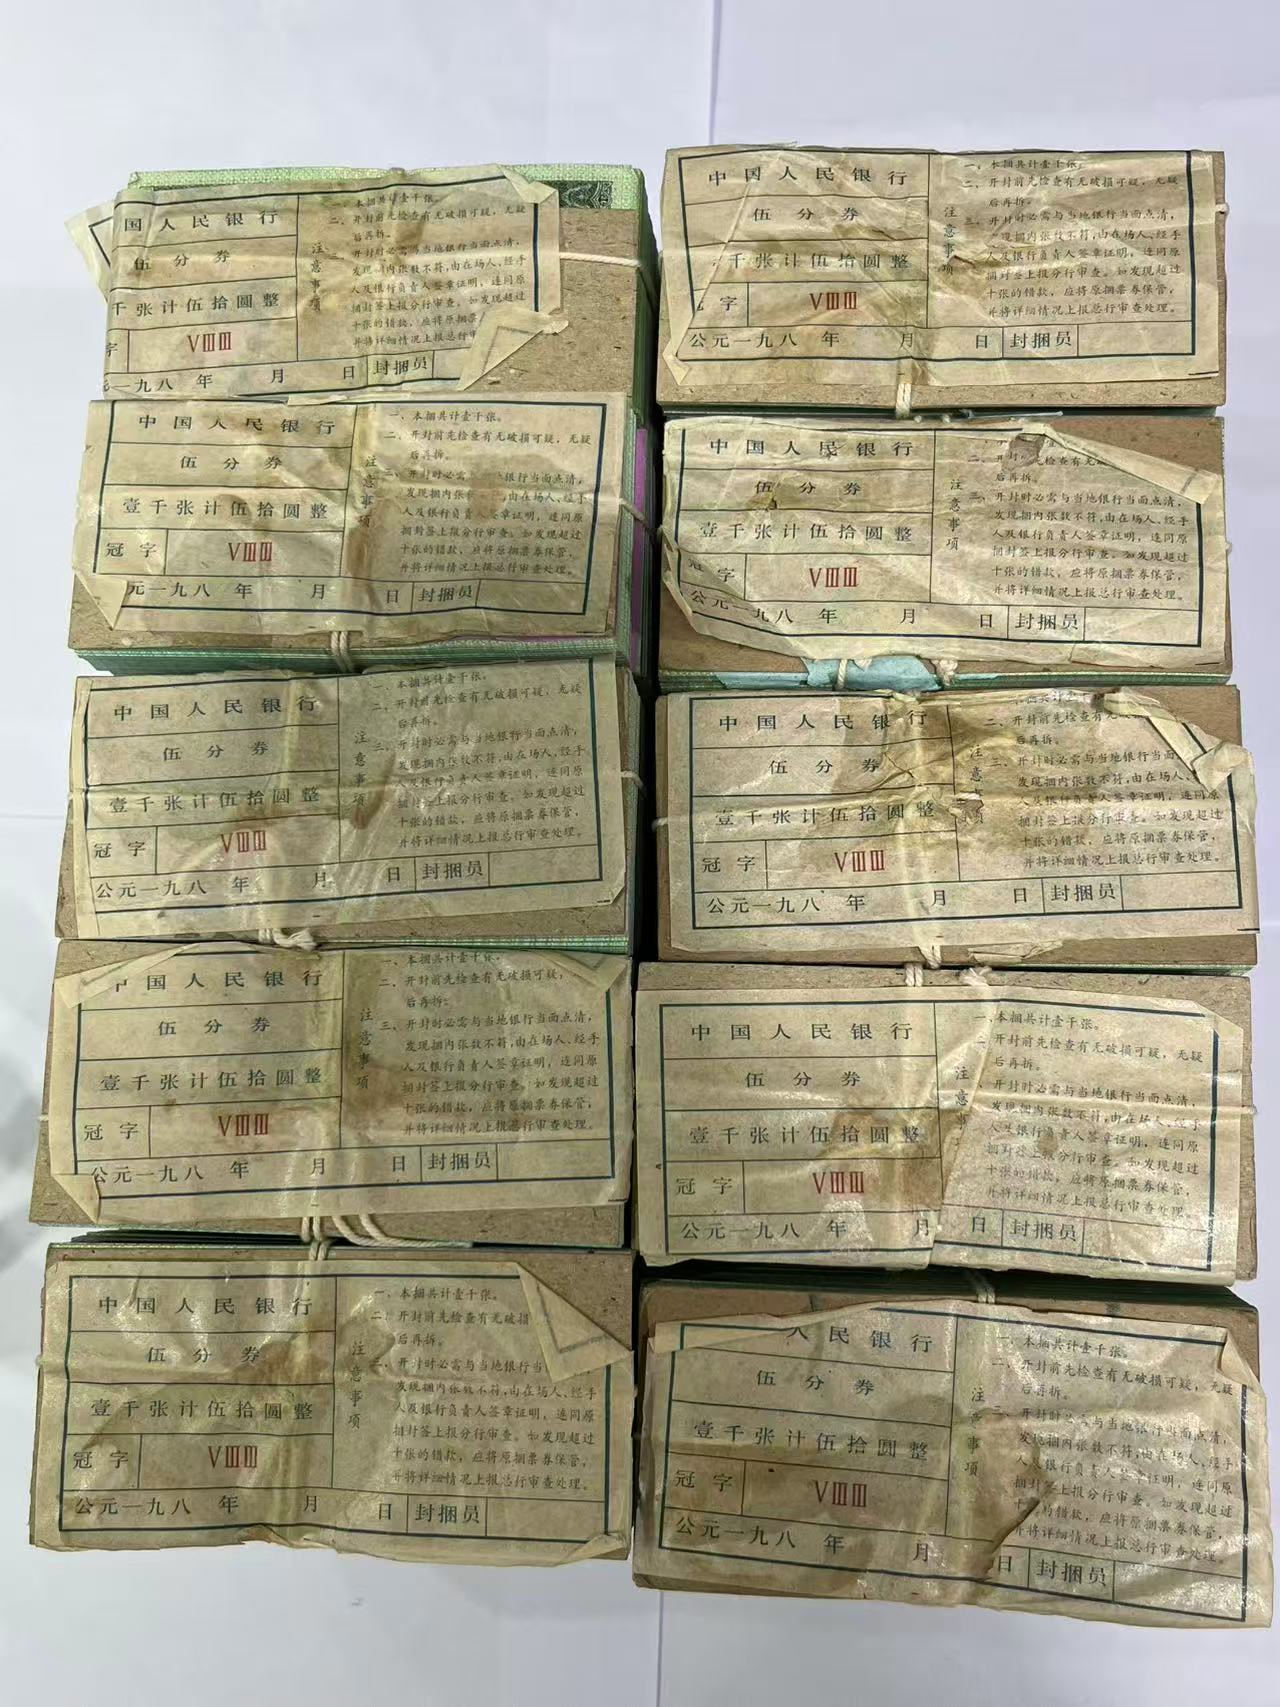 国人民银行
伍分券
千张计伍拾圆整
字 VⅢⅢ
元一九八 年 月 日 封捆员
注意事项
一、本捆共计壹千张。
二、开封前先检查有无破损可疑,无疑
后再拆。
开封时必需与当地银行当面点清,
发现捆内张数不符,由在场人、经手
人及银行负责人签章证明,连同原
捆封签上报分行审查。如发现超过
十张的错款,应将原捆票
并将详细情况上报总行审
中国人民银行
伍分券
壹千张计伍拾圆整
冠字 VⅢⅢ
元一九八 年 月 日 封捆员
注意事项
一、本捆共计壹千张。
二、开封前先检查有无破损可疑,无疑
后再拆。
三、开封时必需 银行当面点清,
发现捆内张 由在场人、经手
人及银行负责人签章证明,连同原
捆封签上报分行审查。如发现超过
十张的错款,应将原捆票券保管,
并将详细情况上报总行审查处理。
中国人民银行
伍分券
壹千张计伍拾圆整
冠字 VⅢⅢ
公元一九八 年 月 日 封捆员
注意事项
一、本捆共计壹千张。
二、开封前先检查有无破损可疑,无疑
后再拆。
三、开封时必需与当地银行当面点清,
发现捆内张数不符,由在场人、经手
人及银行负责人签章证明,连同原
捆封签上报分行审查。如发现超过
十张的错款,应将原捆票券保管,
并将详细情况上报总行审查处理。
中国人民银行
伍分券
壹千张计伍拾圆整
冠字 VⅢⅢ
公元一九八 年 月 日 封捆员
注意事项
一、本捆共计壹千张。
二、开封前先检查有无破损可疑,
后再拆。
三、开封时必需与当地银行当面点清,
发现捆内张数不符,由在场人、经手
人及银行负责人签章证明,连同原
捆封签上报分行审查。如发现超过
十张的错款,应将原捆票券保管,
并将详细情况上报总行审查处理。
中国人民银行
伍分券
壹千张计伍拾圆整
冠字 VⅢⅢ
公元一九八 年 月 日 封捆员
注意事项
一、本捆共计壹千张。
二、开封前先检查有无破损
后再拆。
三、开封时必需与当地银行当
发现捆内张数不符,由在场人、经手
人及银行负责人签章证明,连同原
捆封签上报分行审查。如发现超过
十张的错款,应将原捆票券保管,
并将详细情况上报总行审查处理。
中国人民银行
伍分券
千张计伍拾圆整
字 VⅢⅢ
公元一九八 年 月 日 封捆员
注意事项
一、本捆共计壹千张。
二、开封前先检查有无破损可疑,无疑
后再拆。
三、开封时必需与当地银行当面点清,
发现捆内张数不符,由在场人、经手
人及银行负责人签章证明,连同原
捆封签上报分行审查。如发现超过
十张的错款,应将原捆票券保管,
并将详细情况上报总行审查处理。
中国人民银行
伍分券
壹千张计伍拾圆整
冠字 VⅢⅢ
公元一九八 年 月 日 封捆员
注意事项
二、开封 先检查有无破
后再拆。
三、开封时必需与当地银行当面点清,
发现捆内张数不符,由在场人、经手
人及银行负责人签章证明,连同原
捆封签上报分行审查。如发现超过
十张的错款,应将原捆票券保管,
并将详细情况上报总行审查处理。
中国人民银行
伍分券
壹千张计伍拾圆整
冠字 VⅢⅢ
公元一九八 年 月 日 封捆员
注意事项
本捆共计壹千
二、开封前先检查有无破
后再拆。
三、开封时必需与当地银行当面
发现捆内张数不符,由在场人、
人及银行负责人签章证明,连同原
捆封签上报分行审查。如发现超过
十张的错款,应将原捆票券保管,
并将详细情况上报总行审查处理。
中国人民银行
伍分券
壹千张计伍拾圆整
冠字 VⅢⅢ
公元一九八 年 月 日 封捆员
注意事
一、本捆共计壹千张。
二、开封前先检查有无破损可疑,无疑
后再拆。
开封时必需与当地银行当面点清,
发现捆内张数不符,由在场人、经手
人及银行负责人签章证明,连同原
捆封签上报分行审查。如发现超过
十张的错款,应将原捆票券保管,
并将详细情况上报总行审查处理。
人民银行
伍分券
壹千张计伍拾圆整
冠字 VⅢⅢ
公元一九八 年 月 日 封捆员
注意事项
一、本捆共计壹千张。
二、开封前先检查有无破损可疑,无疑
后再拆。
开封时必需与当地银行当面点清,
发现捆内张数不符,由在场人、经手
人及银行负责人签章证明,连同原
捆封签上报分行审查。如发现超过
十 的错款,应将原捆票券保管,
并将详细情况上报总行审查处理。